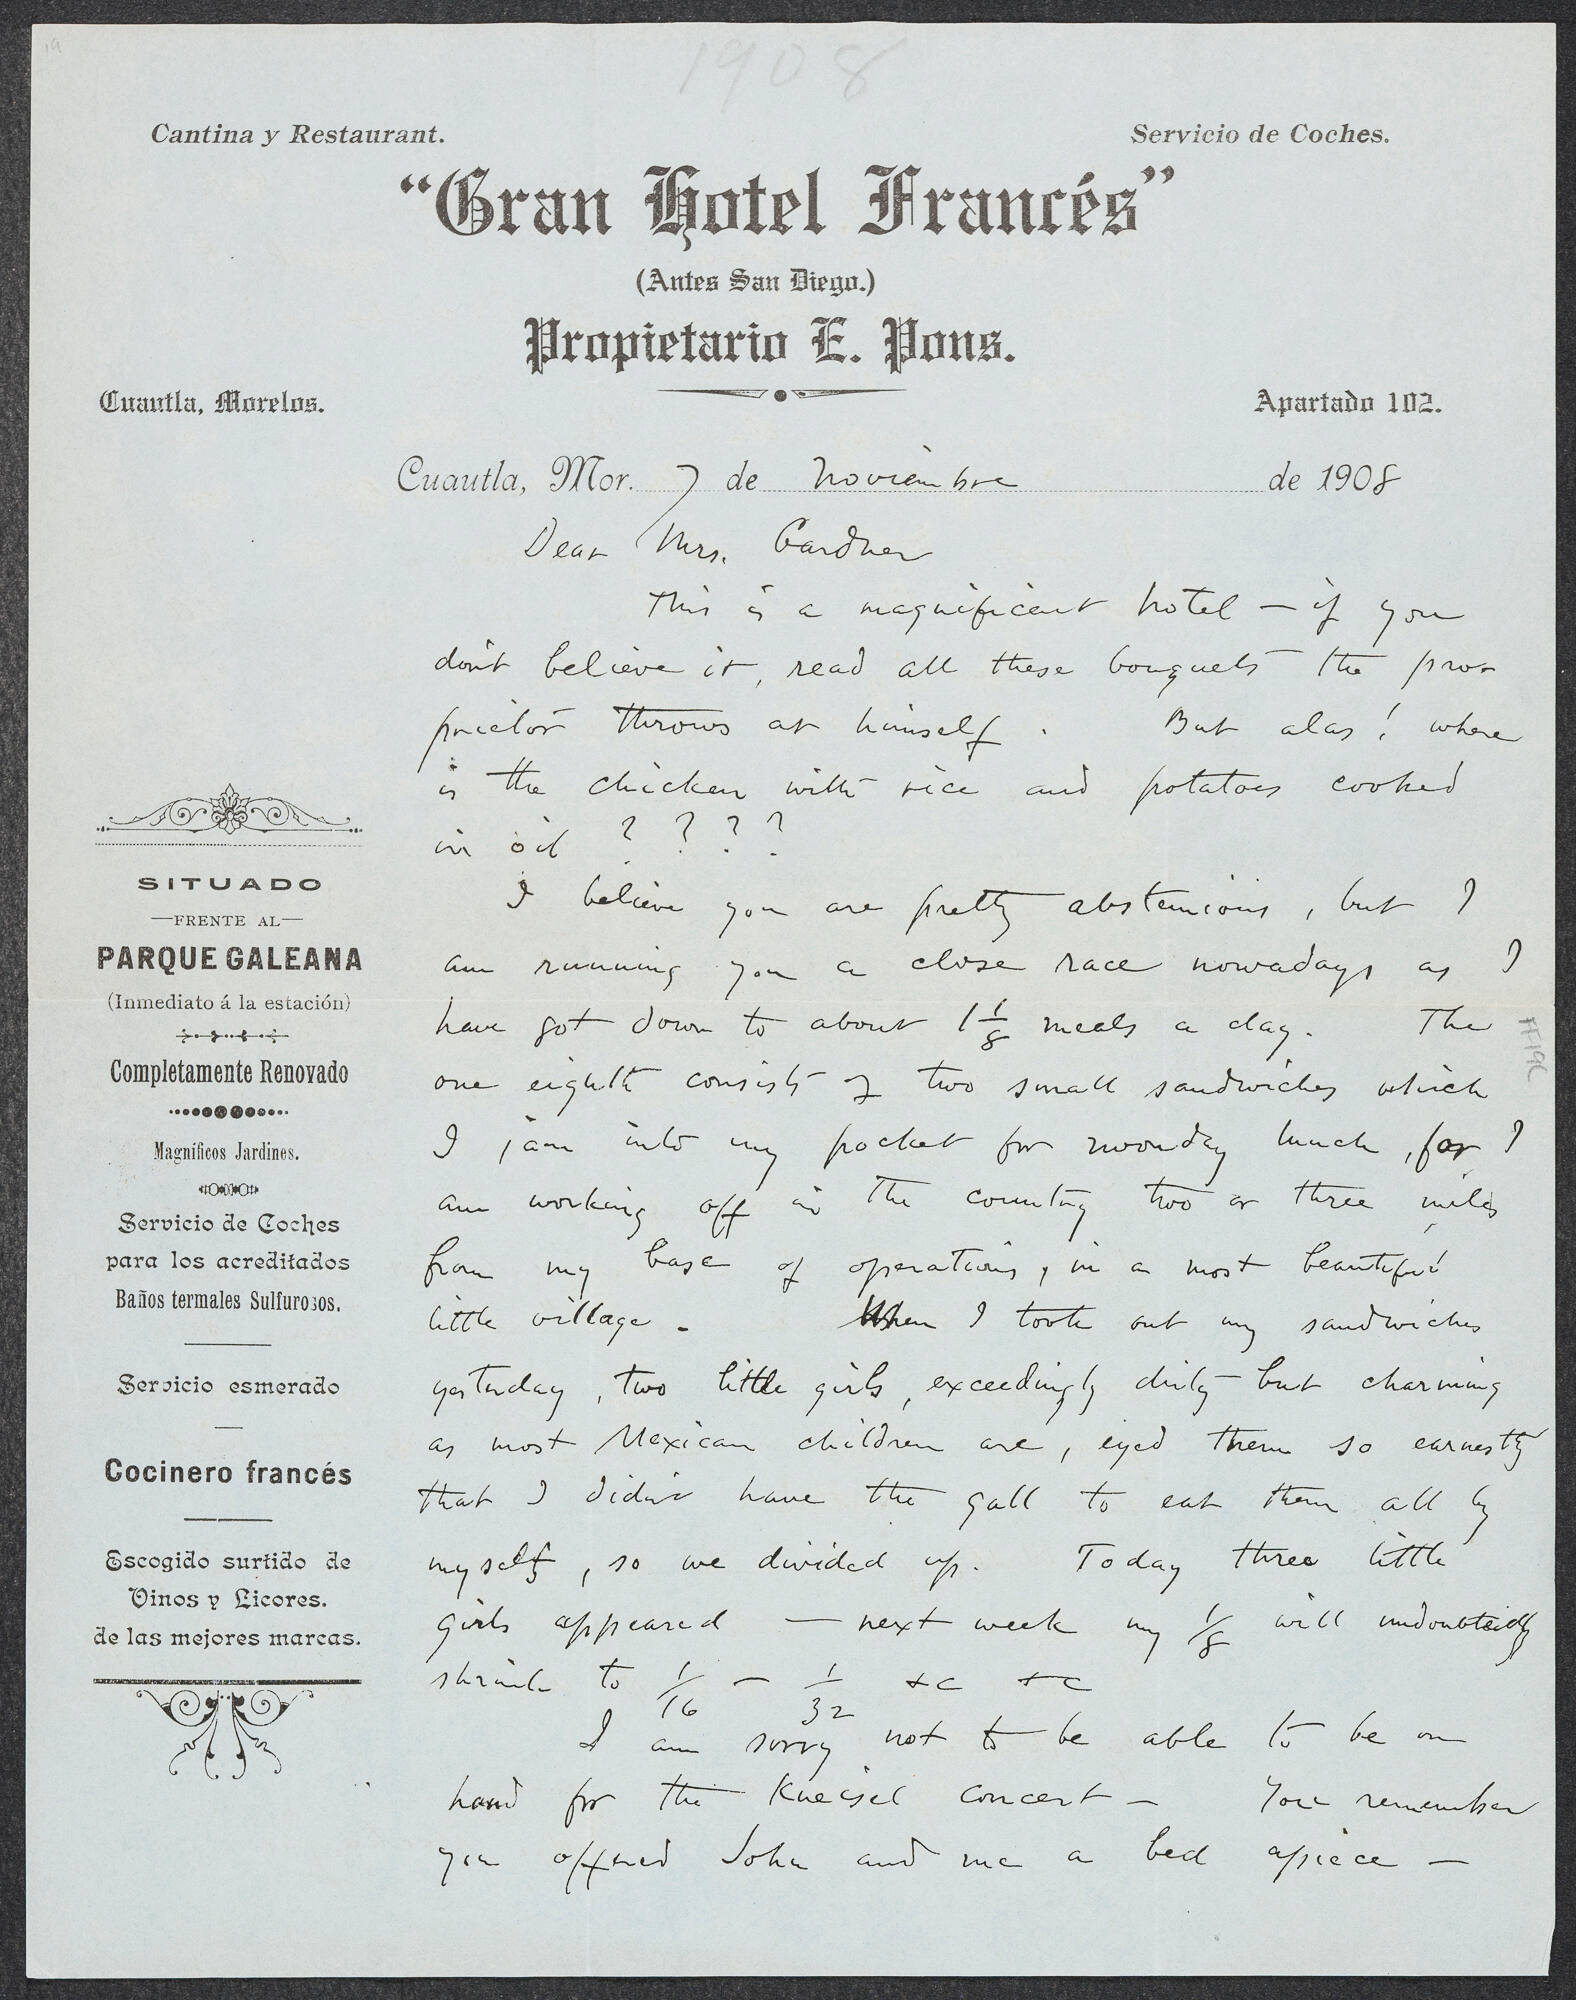 1908
Cantina y Restaurant.
Servicio de Coches.
"Gran Hotel Francés"
(Antes San Diego.)
Propietario E. Pons.
Cuautla, Morelos.
Apartado 102.
Cuautla, Mor. 7 de Noviembre de 1908
Dear Mrs. Gardner
This is a magnificent hotel — if you
don't believe it, read all these bouquets the pro-
prietor throws at himself. But alas! where
is the chicken with rice and potatoes cooked
in oil ? ? ? ?
I believe you are pretty abstemious, but I
am running you a close race nowadays as I
have got down to about 1 1/8 meals a day. The
one eighth consists of two small sandwiches which
I jam into my pocket for noonday lunch, for I
am working off in the country two or three miles
from my base of operations, in a most beautiful
little village. When I took out my sandwiches
yesterday, two little girls, exceedingly dirty but charming
as most Mexican children are, eyed them so earnestly
that I didn't have the gall to eat them all by
myself, so we divided up. Today three little
girls appeared — next week my 1/8 will undoubtedly
shrink to 1/16 — 1/32 &c &c
I am sorry not to be able to be on
hand for the Kneisel concert — You remember
you offered John and me a bed apiece —
SITUADO
—FRENTE AL—
PARQUE GALEANA
(Inmediato á la estación)
Completamente Renovado
Magníficos Jardines.
Servicio de Coches
para los acreditados
Baños termales Sulfurosos.
Servicio esmerado
Cocinero francés
Escogido surtido de
Vinos y Licores.
de las mejores marcas.